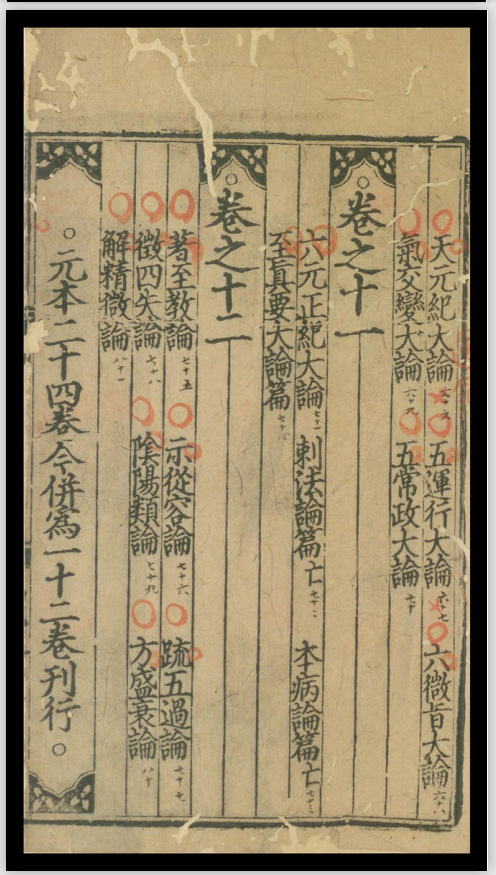 天元紀大論 六十六 五運行大論 六十七 六微旨大論 六十八
氣交變大論 六十九 五常政大論 七十
○卷之十一
六元正紀大論 七十一 刺法論篇亡 七十二 本病論篇亡 七十三
至眞要大論篇 七十四
○卷之十二
著至教論 七十五 示從容論 七十六 䟽五過論 七十七
徵四失論 七十八 陰陽類論 七十九 方盛衰論 八十
解精微論 八十一
○元本二十四卷今併爲一十二卷刊行○